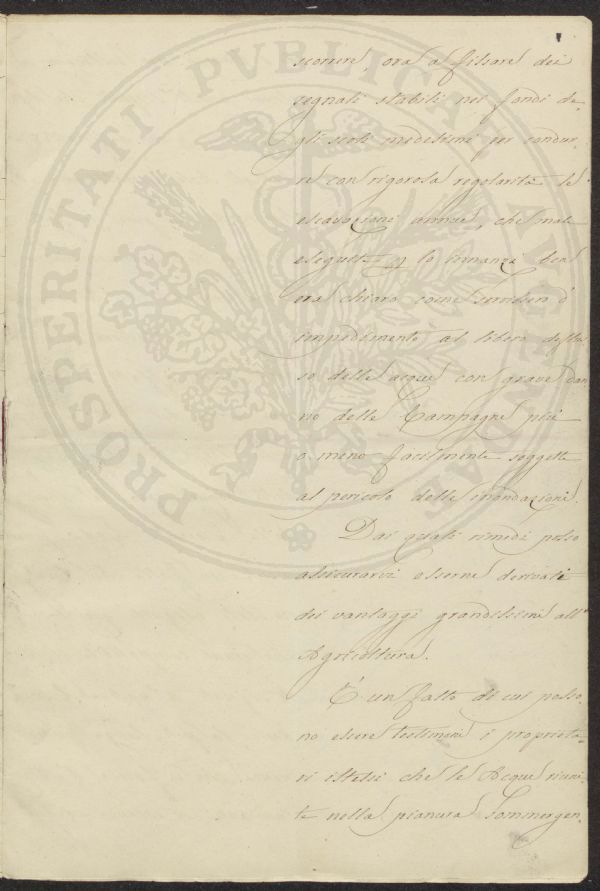 PROSPERITATI PVBLICAE AVGENDAE
scorrere, ora a fissare dei
segnali stabili nei fondi de
gli scoli medesimi per condur
re con rigorosa regolarità le
escavazioni annue, che mal
eseguite la
era chiaro come servissero d'
impedimento al libero deflus
so delle acque con grave dan
no delle Campagne più
o meno facilmente soggette
al pericolo delle inondazioni.
Dai quali rimedi posso
assicurarvi esserne derivati
dei vantaggi grandissimi all'
Agricoltura.
È un fatto di cui posso
no essere testimoni i proprieta
ri istessi che le Acque riuni
te nella pianura sommergen